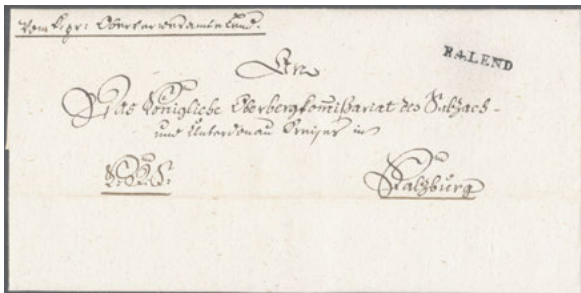 Vom k. gr: Oberverwesamte Lend.
R.4.LEND
An
Das Königliche Oberbergkommißariat des Salzach-
und Unterdonau Kreises in
Salzburg